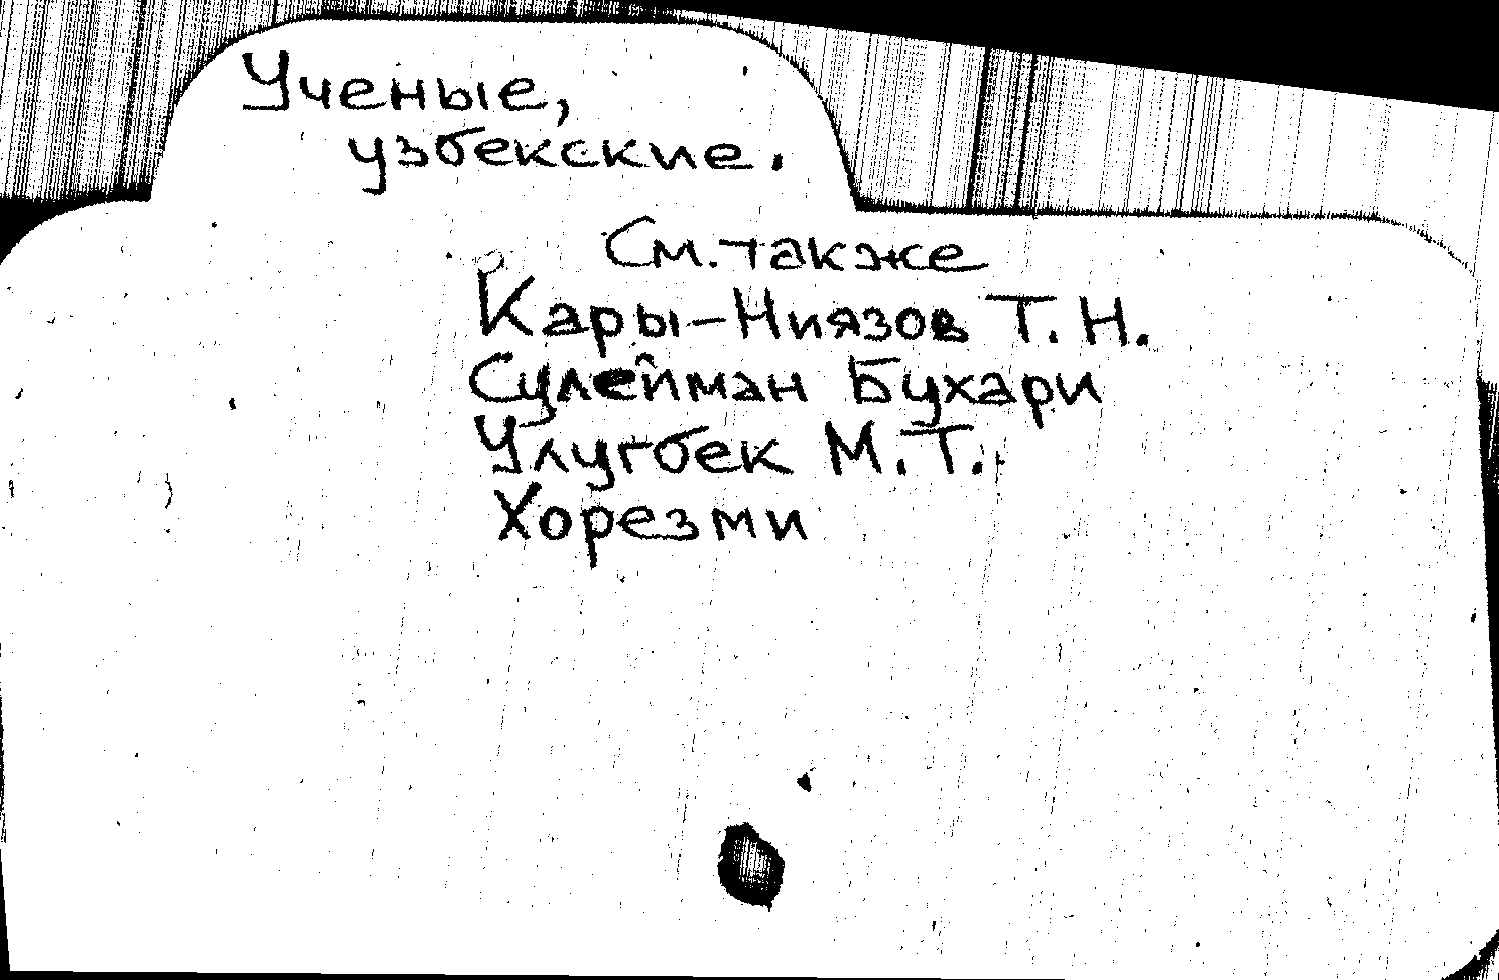 Ученые,
узбекские.
См. также
Кары-Ниязов Т. Н.
Сулейман Бухари
Улугбек М. Т.
Хорезми